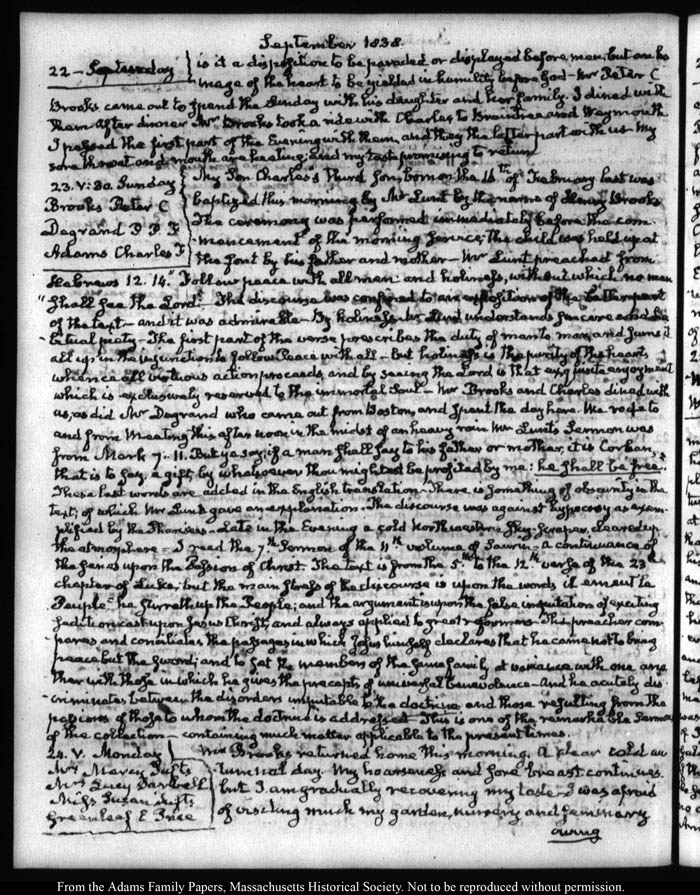 September 1838.
22 – Saturday
is it a disposition to be paraded or displayed before men, but an ho
mage of the heart to be yielded in humility before God – Mr Peter C
Brooks came out to spend the Sunday with his daughter and her family. I dined with
them. After dinner Mr Brooks took a ride with Charles to Braintree and Weymouth
I passed the first part of the Evening with them, and they the latter part with us. My
sore throat and mouth are healing; and my taste promising to return
23. V:30. Sunday
Brooks Peter C
Degrand P. P. F
Adams Charles F
My Son Charles's Third Son, born on the 16th of February last was
baptized this morning by Mr Lunt by the name of Henry Brooks
The ceremony was performed immediately before the com
mencement of the morning service, the child was held up at
the font by his father and mother – Mr Lunt preached from
Hebrews 12. 14. "Follow peace with all men and holiness, without which no man
"shall see the Lord." The discourse was confined to an exposition of the latter part
of the text – and it was admirable – By holiness Mr Lunt understands sincere and ha
bitual piety – The first part of the verse prescribes the duty of man to man, and sums it
all up in the injunction to follow Peace with all – but holiness is the purity of the heart
whence all virtuous action proceeds, and by seeing the Lord is that exquisite enjoyment
which is exclusively reserved to the immortal Soul – Mr Brooks and Charles dined with
us, as did Mr Degrand who came out from Boston, and spent the day here. We rode to
and from Meeting this afternoon in the midst of an heavy rain Mr Lunt's Sermon was
from Mark 7. 11. But ye say, if a man shall say to his father or mother, it is Corban,
that is to say, a gift, by whatsoever thou mightest be profited by me: he shall be free.
These last words are added in the English translation – There is something of obscurity in the
text, of which Mr Lunt gave an explanation. The discourse was against hypocrisy as exem
plified by the Pharisees – Late in the Evening a cold Northwestern Sky-scraper, cleared up
the atmosphere – I read the 7th Sermon of the 11th volume of Saurin – a continuance of
the series upon the Passion of Christ. The text is from the 5th to the 12th verse of the 23d
chapter of Luke; but the main stress of the discourse is upon the words il emeut le
Peuple – he stirreth up the People; and the argument is upon the false imputation of exciting
sedition cast upon Jesus Christ, and always applied to great reformers – The preacher com
pares and conciliates the passages in which Jesus himself declares that he came not to bring
peace but the sword; and to set the members of the same family at variance with one ano
ther with those in which he gives the precepts of universal benevolence – And he acutely dis
criminates between the disorders imputable to the doctrine, and those resulting from the
passions of those to whom the doctrine is addressed – This is one of the remarkable Sermons
of the collection – containing much matter applicable to the present times.
24. V. Monday
Mrs Mercy Tufts
Mrs Lucy Tarbell
Miss Susan Tufts
Greenleaf E Price
Mr Brooks returned home this morning. A clear cold au
tumnal day. My hoarseness and sore breast continues
but I am gradually recovering my taste. I was afraid
of visiting much my garden, nursery and seminary
during
From the Adams Family Papers, Massachusetts Historical Society. Not to be reproduced without permission.